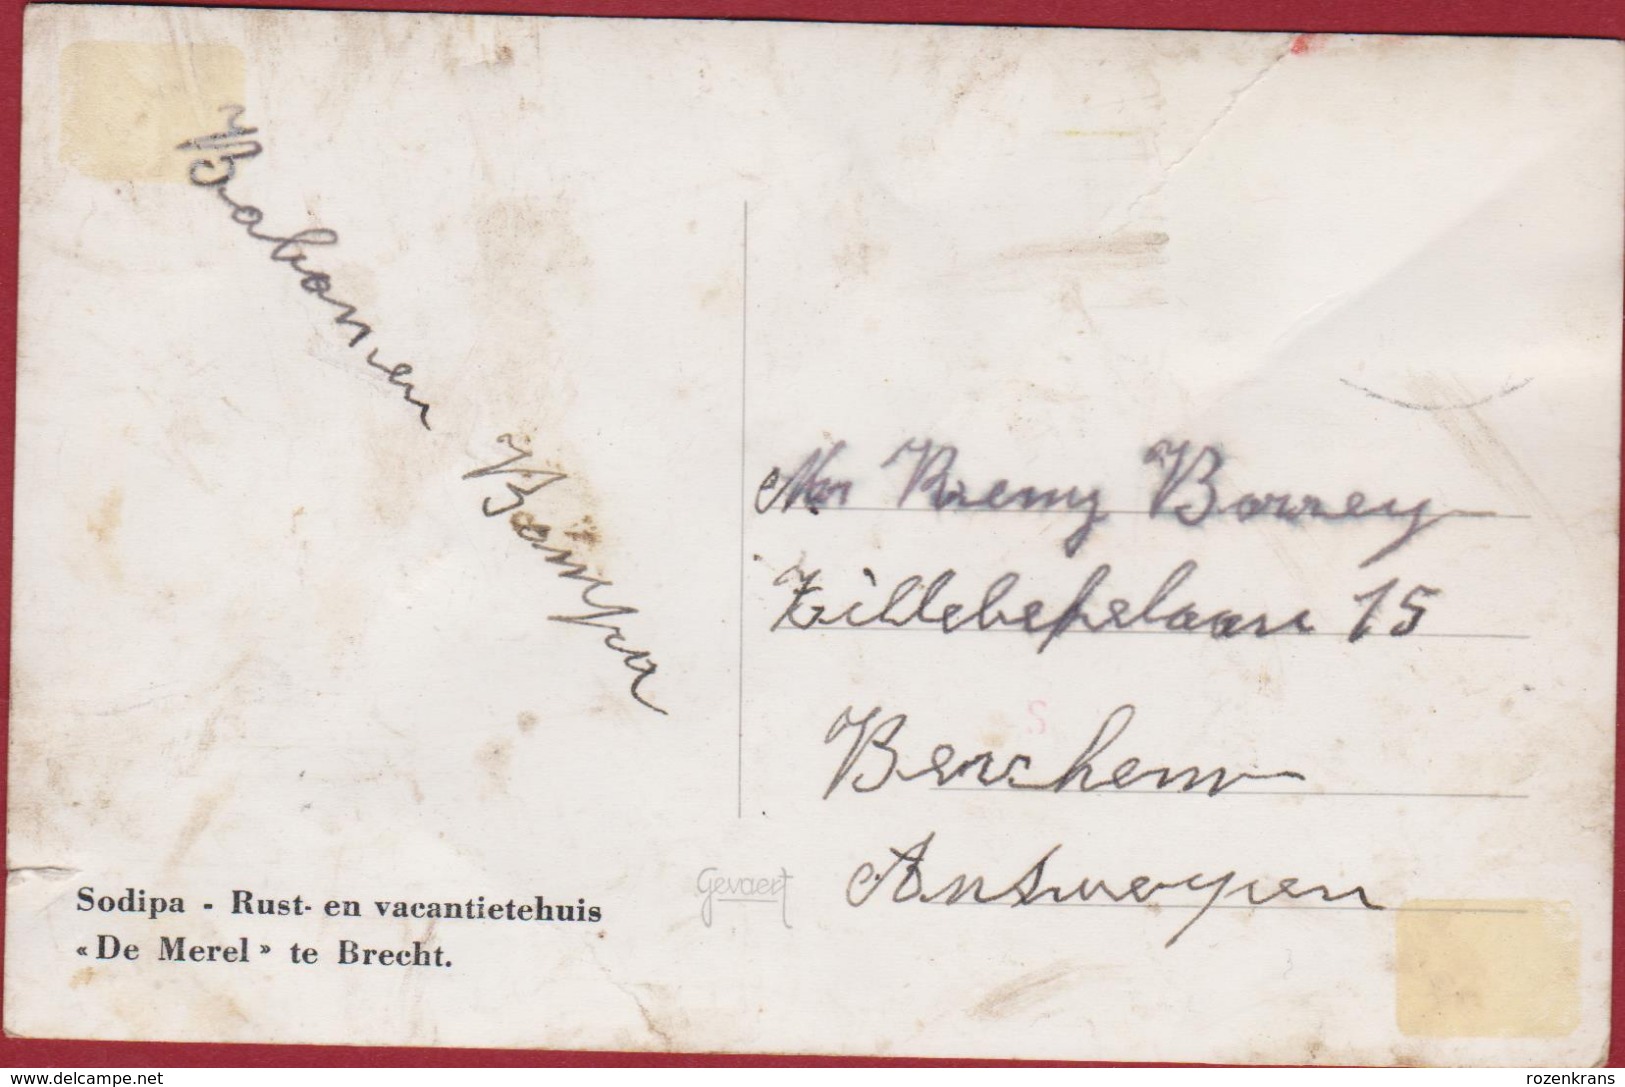 Babonen
Bompa
Mr Remy Borrey
Zillebekelaan 15
Berchem
Antwerpen
Gevaert
Sodipa - Rust- en vacantietehuis
« De Merel » te Brecht.
S
www.delcampe.net
rozenkrans